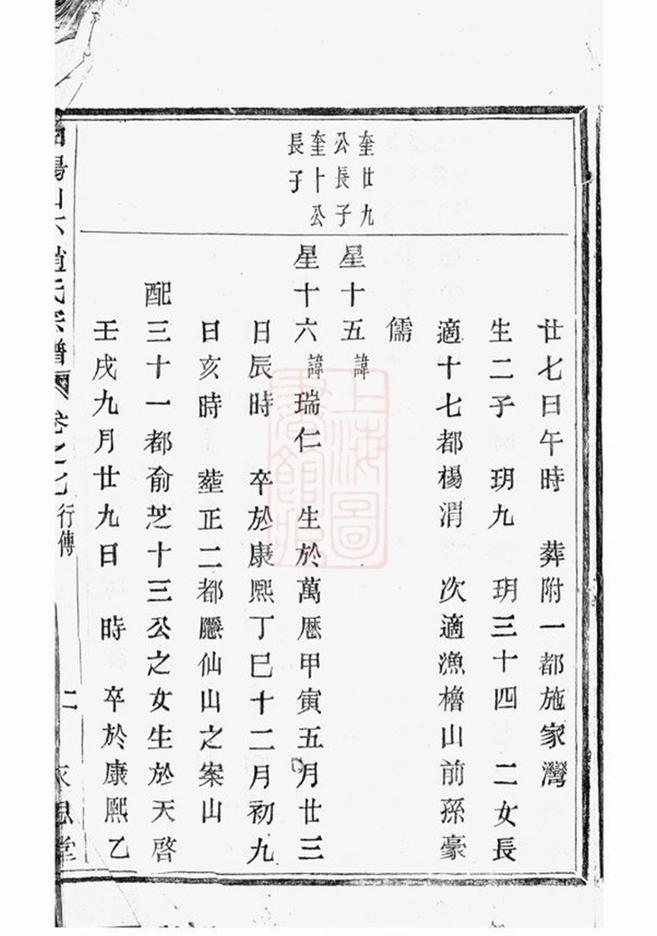 奎廿九
公長子
奎十公
長子
廿七日午時　葬附一都施家灣
生二子　玥九　玥三十四　二女長
適十七都楊渭　次適漁櫓山前孫豪
儒
星十五諱
星十六諱瑞仁　生於萬厯甲寅五月廿三
日辰時　卒於康熙丁巳十二月初九
日亥時　塟正二都仙山之案山
配三十一都俞芝十三公之女生於天啓
壬戌九月廿九日　時　卒於康熙乙
趙氏宗譜　卷之七　行傳　二　思堂
上海圖書館